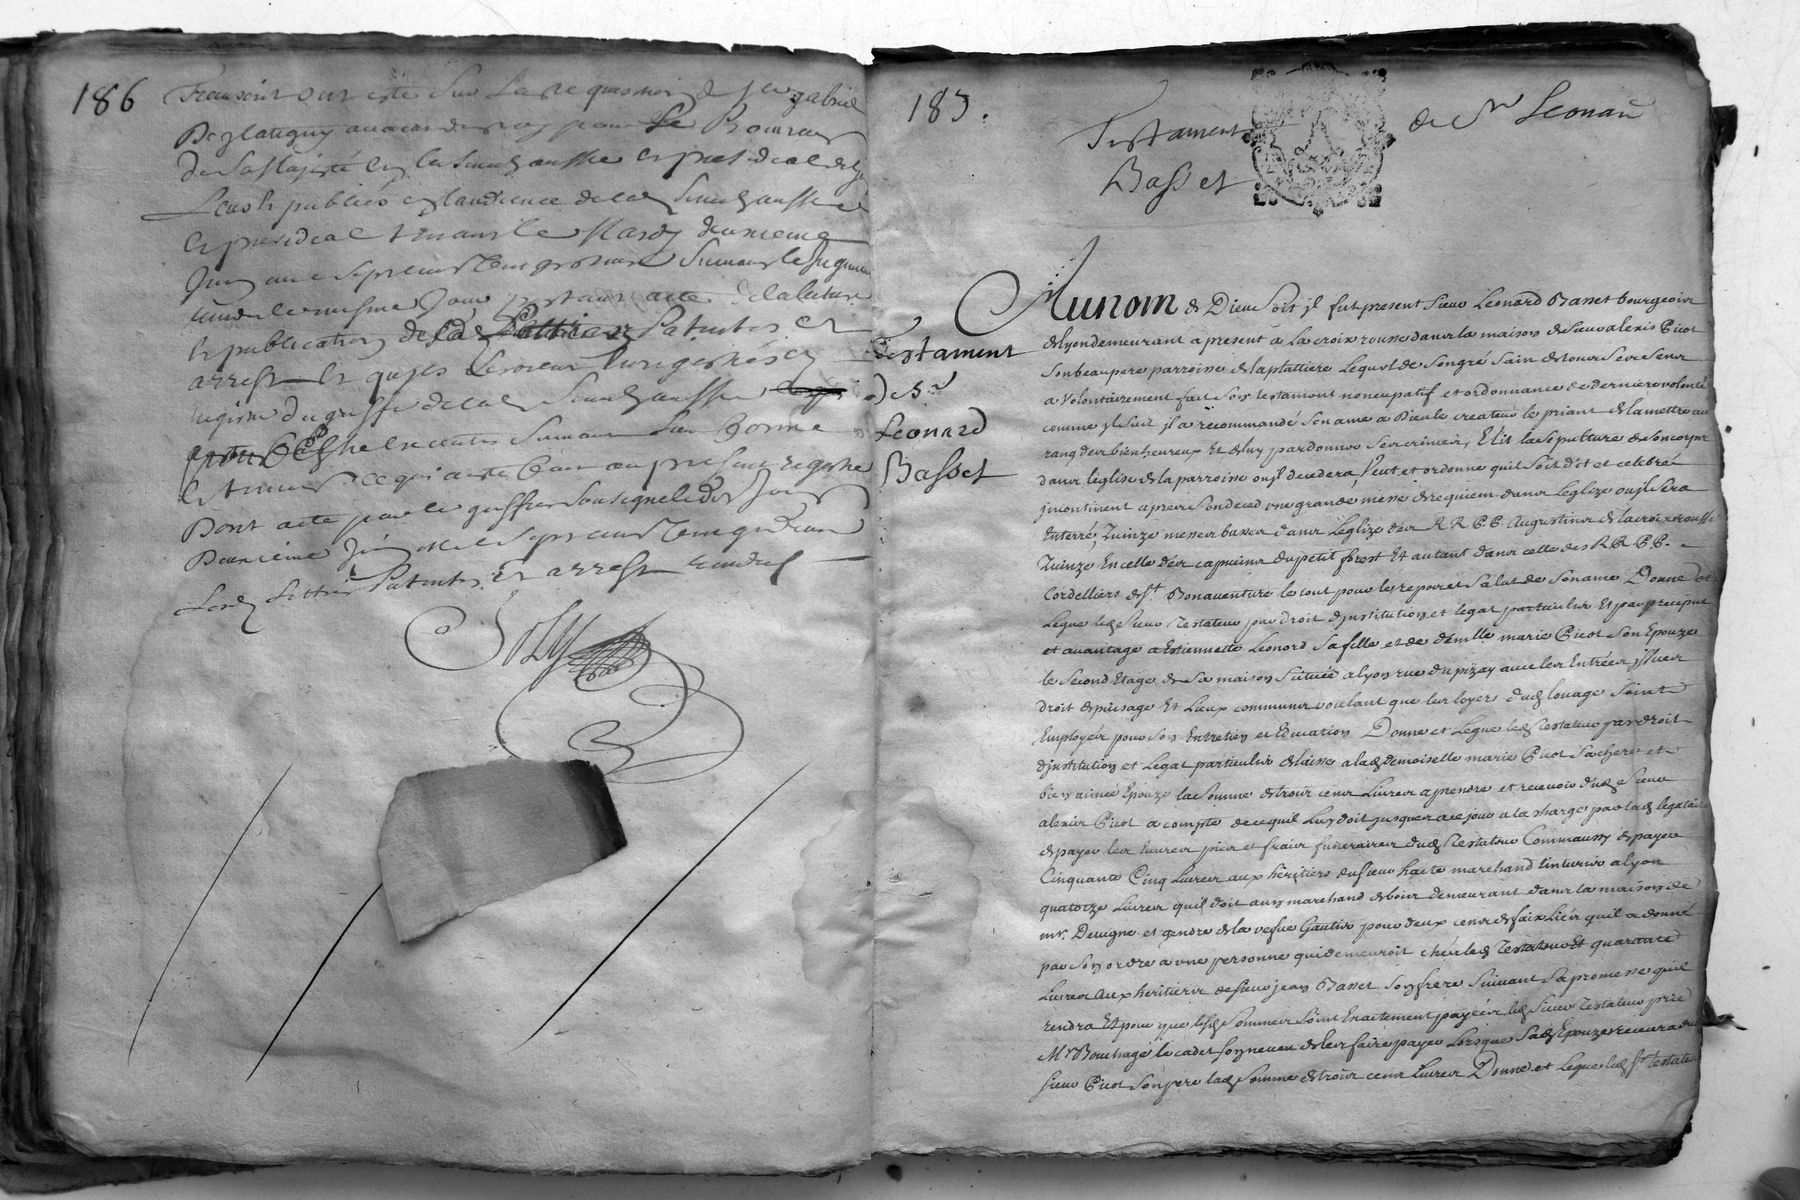 186
Transcrit ont esté sur la requisition de Mre gabriel
De glatigny avocat du roy pour Le Procureur
De sa Majesté en la Senechaussée et presidial de Lyon
Leus et publiés en laudience de lad Senechaussée
et presidial tenant le Mardy deuxieme
Juin mil sept cens vingt suivant le Jugement
rendu le mesme Jour portant acte de la lecture
et publication desd Lettres Patentes et
arrest et quils seroient enregistrés es
registres du greffe de lad Senechaussée
et executés suivant leur forme
et teneur ce qui a esté fait au present registre
Dont acte par le greffier soussigné led Jour
Deuxieme Juin mil sept cens vingt
Lesd Lettres Patentes et arrest rendus
185.
Testament de Sr Leonard
Basset
Testament
de Sr
Leonard
Basset
Au nom de Dieu soit jl fut present sieur Leonard Basset bourgeois
de lyon demeurant a present a la croix rousse dans la maison de sieur alexis Picot
son beaupere parroisse de la plattiere Lequel de son gré sain de tous ses sens
a volontairement fait son testament noncupatif et ordonnance de derniere volonté
comme jl suit jl a recommandé son ame a Dieu le createur le priant de la mettre au
rang des bienheureux et de luy pardonner ses crimes, Elit la sepulture de son corps
dans leglise de la parroisse ou jl decedera, Veut et ordonne quil soit dit et celebré
jncontinent apres son deced une grande messe de requiem dans Leglize ou jl sera
Enterré, Quinze messes basses dans Leglize des R R. P P. Augustins de la croix rousse
Quinze En celle des capucins du petit forest Et autant dans celle des R R. P P.
Cordelliers de St. Bonaventure le tout pour le repos et salut de son ame Donne et
Legue led sieur Testateur par droit djnstitution et legat particulier Et par preciput
et avantage a Estiennette Leonord sa fille et de demlle marie Picot son Epouze
le second Etage de sa maison scituée a lyon rue du pizay avec les Entrées jssues
droit de puisage Et Lieux communs voulant que les loyers dud louage soint
Employés pour son Entretien et Education Donne et Legue led Testateur par droit
djnstitution et Legat particulier delaisse a lad demoiselle marie Picot sa chere et
bien aimée Epouze la somme de trois cens Livres a prendre et recevoir dud sieur
alexis Picot a compte de ce quil Luy doit jusques a ce jour a la charge par lad legataire
de payer les heures pies et fraix funeraires dud Testateur Comme aussy de payer
Cinquante Cinq Livres aux héritiers du sieur haite marchand tinturier a lyon
quatorze Livres quil doit au sr marchand de bois demeurant dans la maison de
mr. Decugne et gendre de la vefue Gautier pour deux cens de faix Liés quil a donné
par son ordre a une personne qui demeuroit chés led Testateur Et quarante
Livres aux heritiers de sieur jean Basset son frere suivant sa promesse quil
rendra Et pour que lesd sommes soint Exactement payées led sieur Testateur prie
Mr Bouchage le cadet son neveu de les faire payer Lorsque sad Epouze recevra dud
sieur Picot son pere lad somme de trois cens Livres Donne et Legue led sr testateur